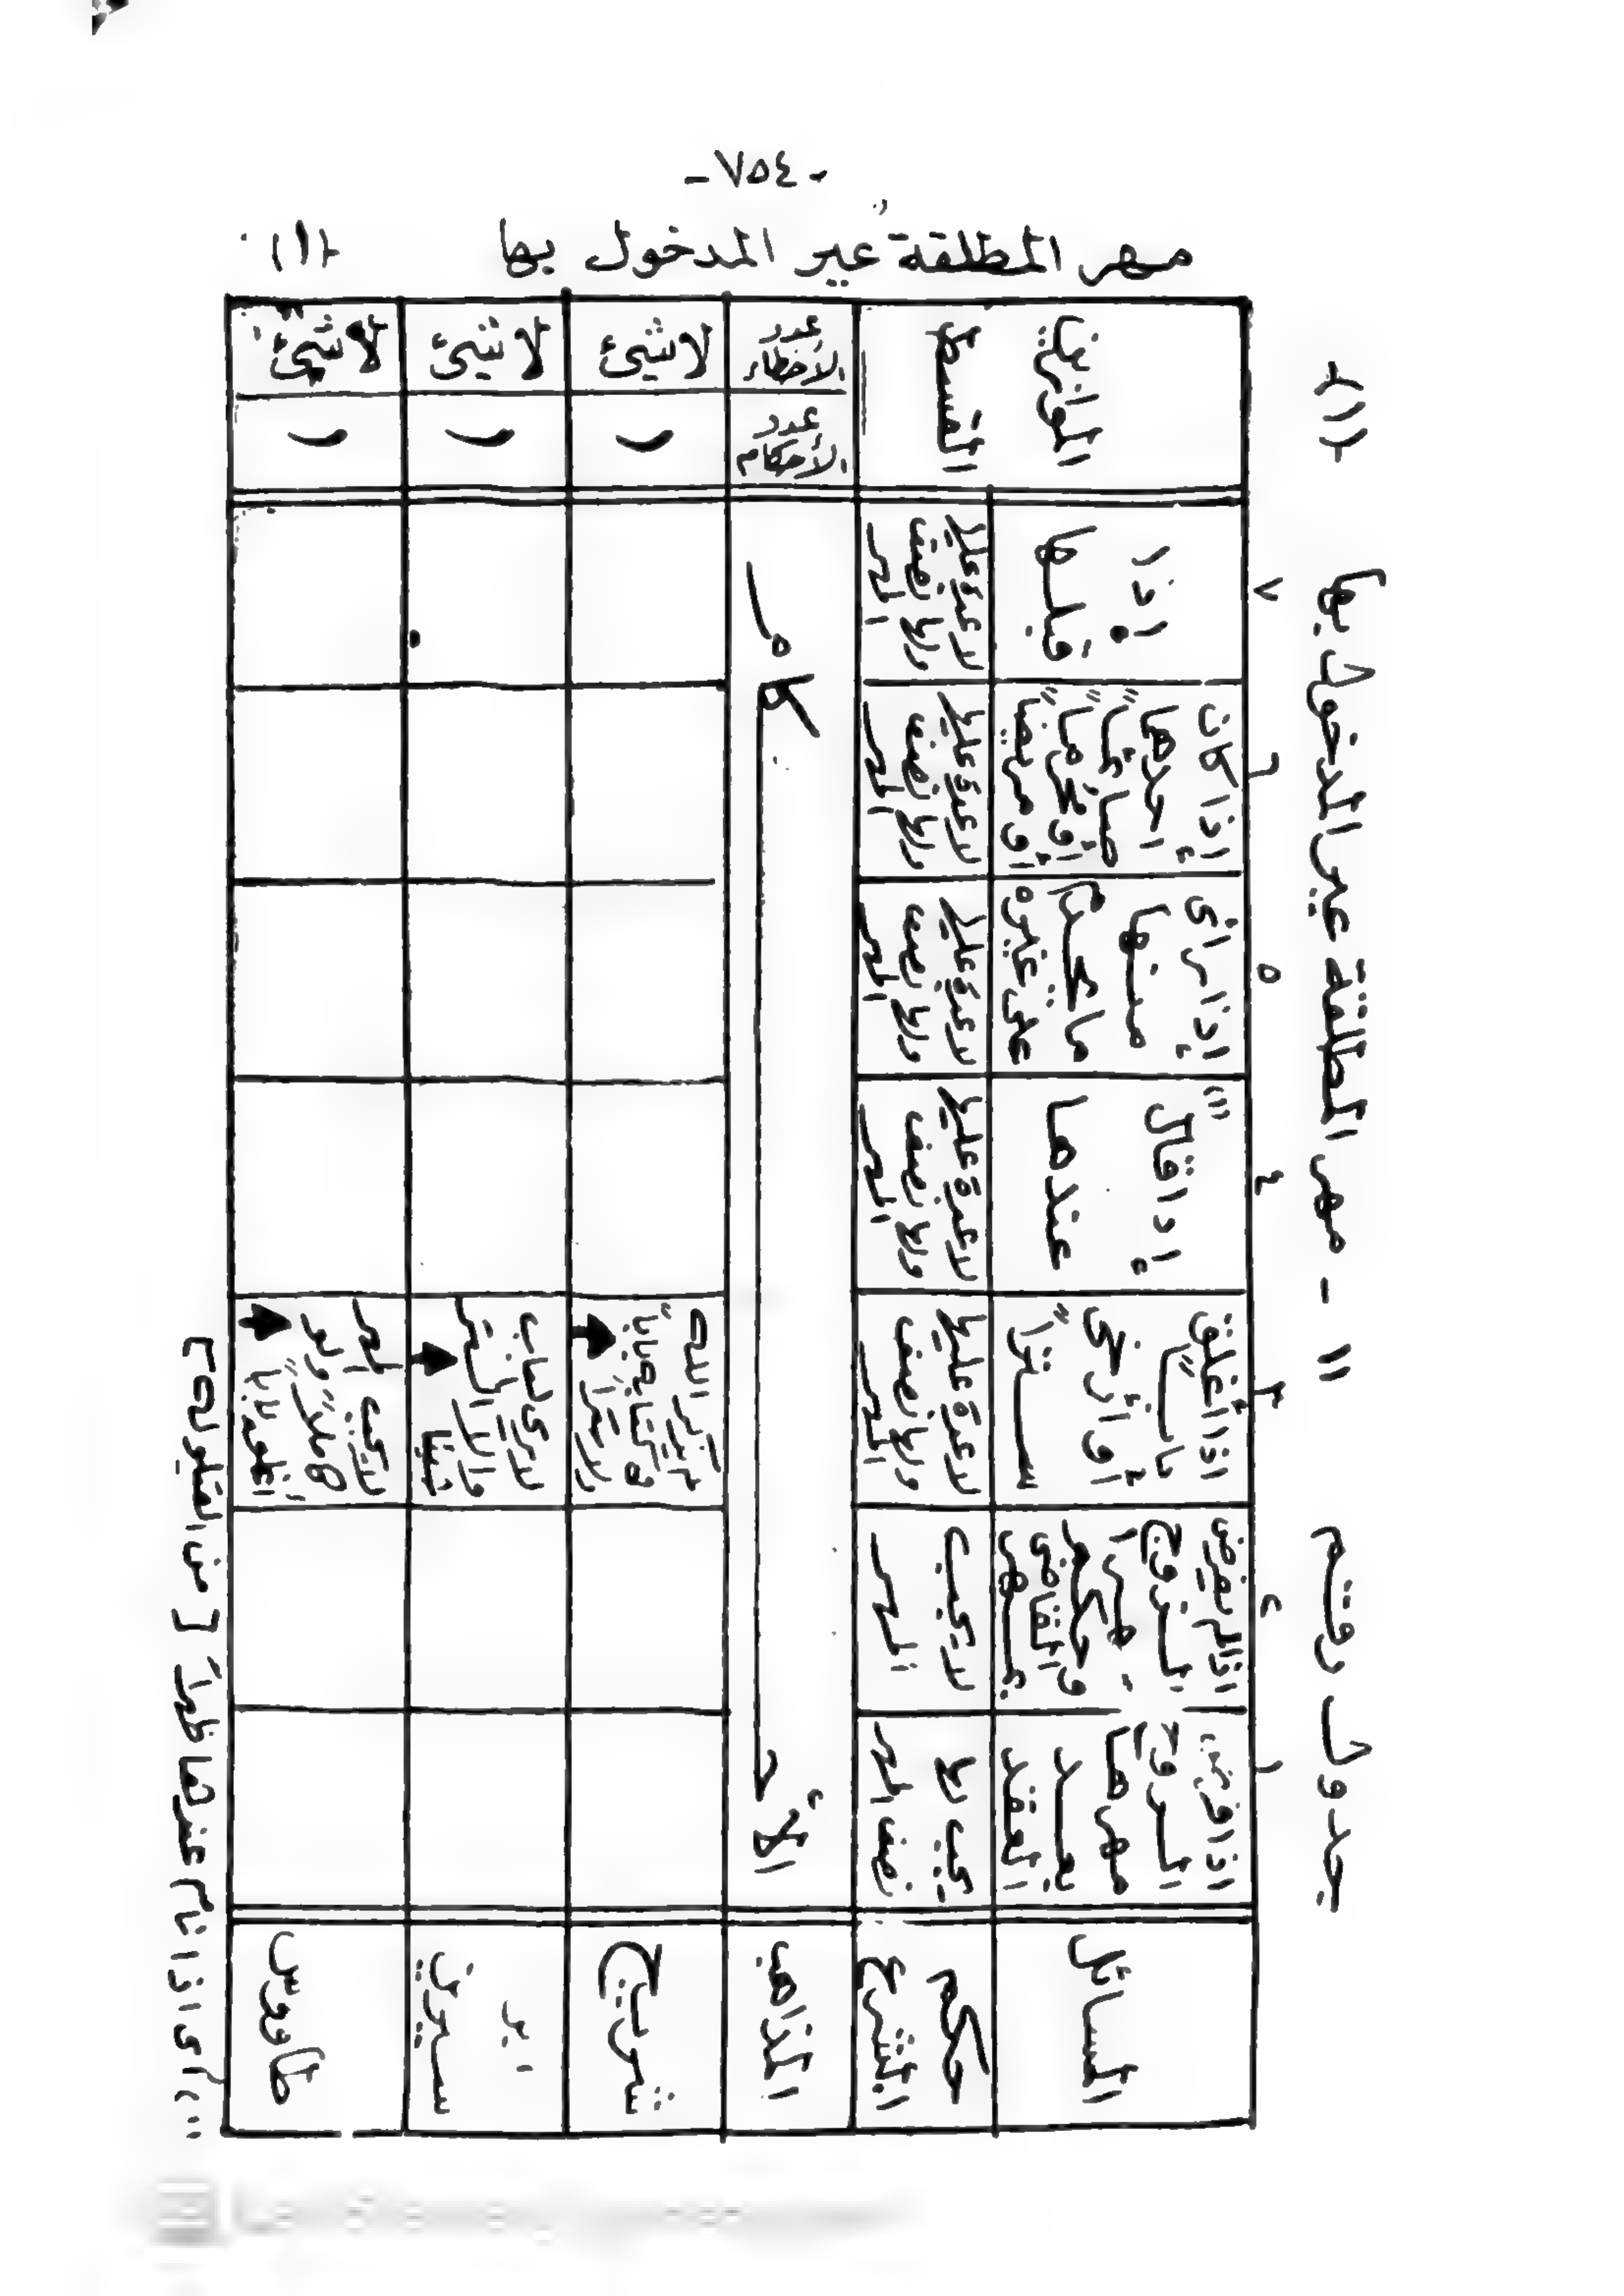 -٧٥٤-
مهر المطلقة غير المدخول بها (١)
جدول رقم ١١ - مهر المطلقة غير المدخول بها (١)
١
٢
٣
٤
٥
٦
٧
المسائل
إذا فرض
الزوج
مهرها
بعد
العقد
إذا لم يفرض
الزوج
مهرا
وحكم
القاضي
بمهر
إذا أغلق
بابا
أو أرخى
سترا
إذا قال (١)
عندها
إذا رأى
منها
ما يحرم
على غيره
إذا كان
احدهما
صائما
أو محرما
أو مريضا
إذا
قبلها
الموازين
القسط
حكم
الشرع
يجب لها
نصف المهر
لا يجب
المهر
لا عدة عليها
ولها نصف
المهر
لا عدة عليها
ولها نصف
المهر
لا عدة عليها
ولها نصف
المهر
لا عدة عليها
ولها نصف
المهر
لا عدة عليها
ولها نصف
المهر
المذاهب
الأحكام
عدد
الأخطاء
عدد
الأحكام
شريح
لم يذكر الله
في كتابه بابا
ولا سترا
١
لا شيئ
ابن
سيرين
لا يرى لباب
ولا لستر
شيئا
١
لا شيئ
طاووس
لا يجب المهر
كاملا ولو
أغلق بابا
١
لا شيئ
(١) أي إذا نام عندها ظهرا [ من القيلولة ]